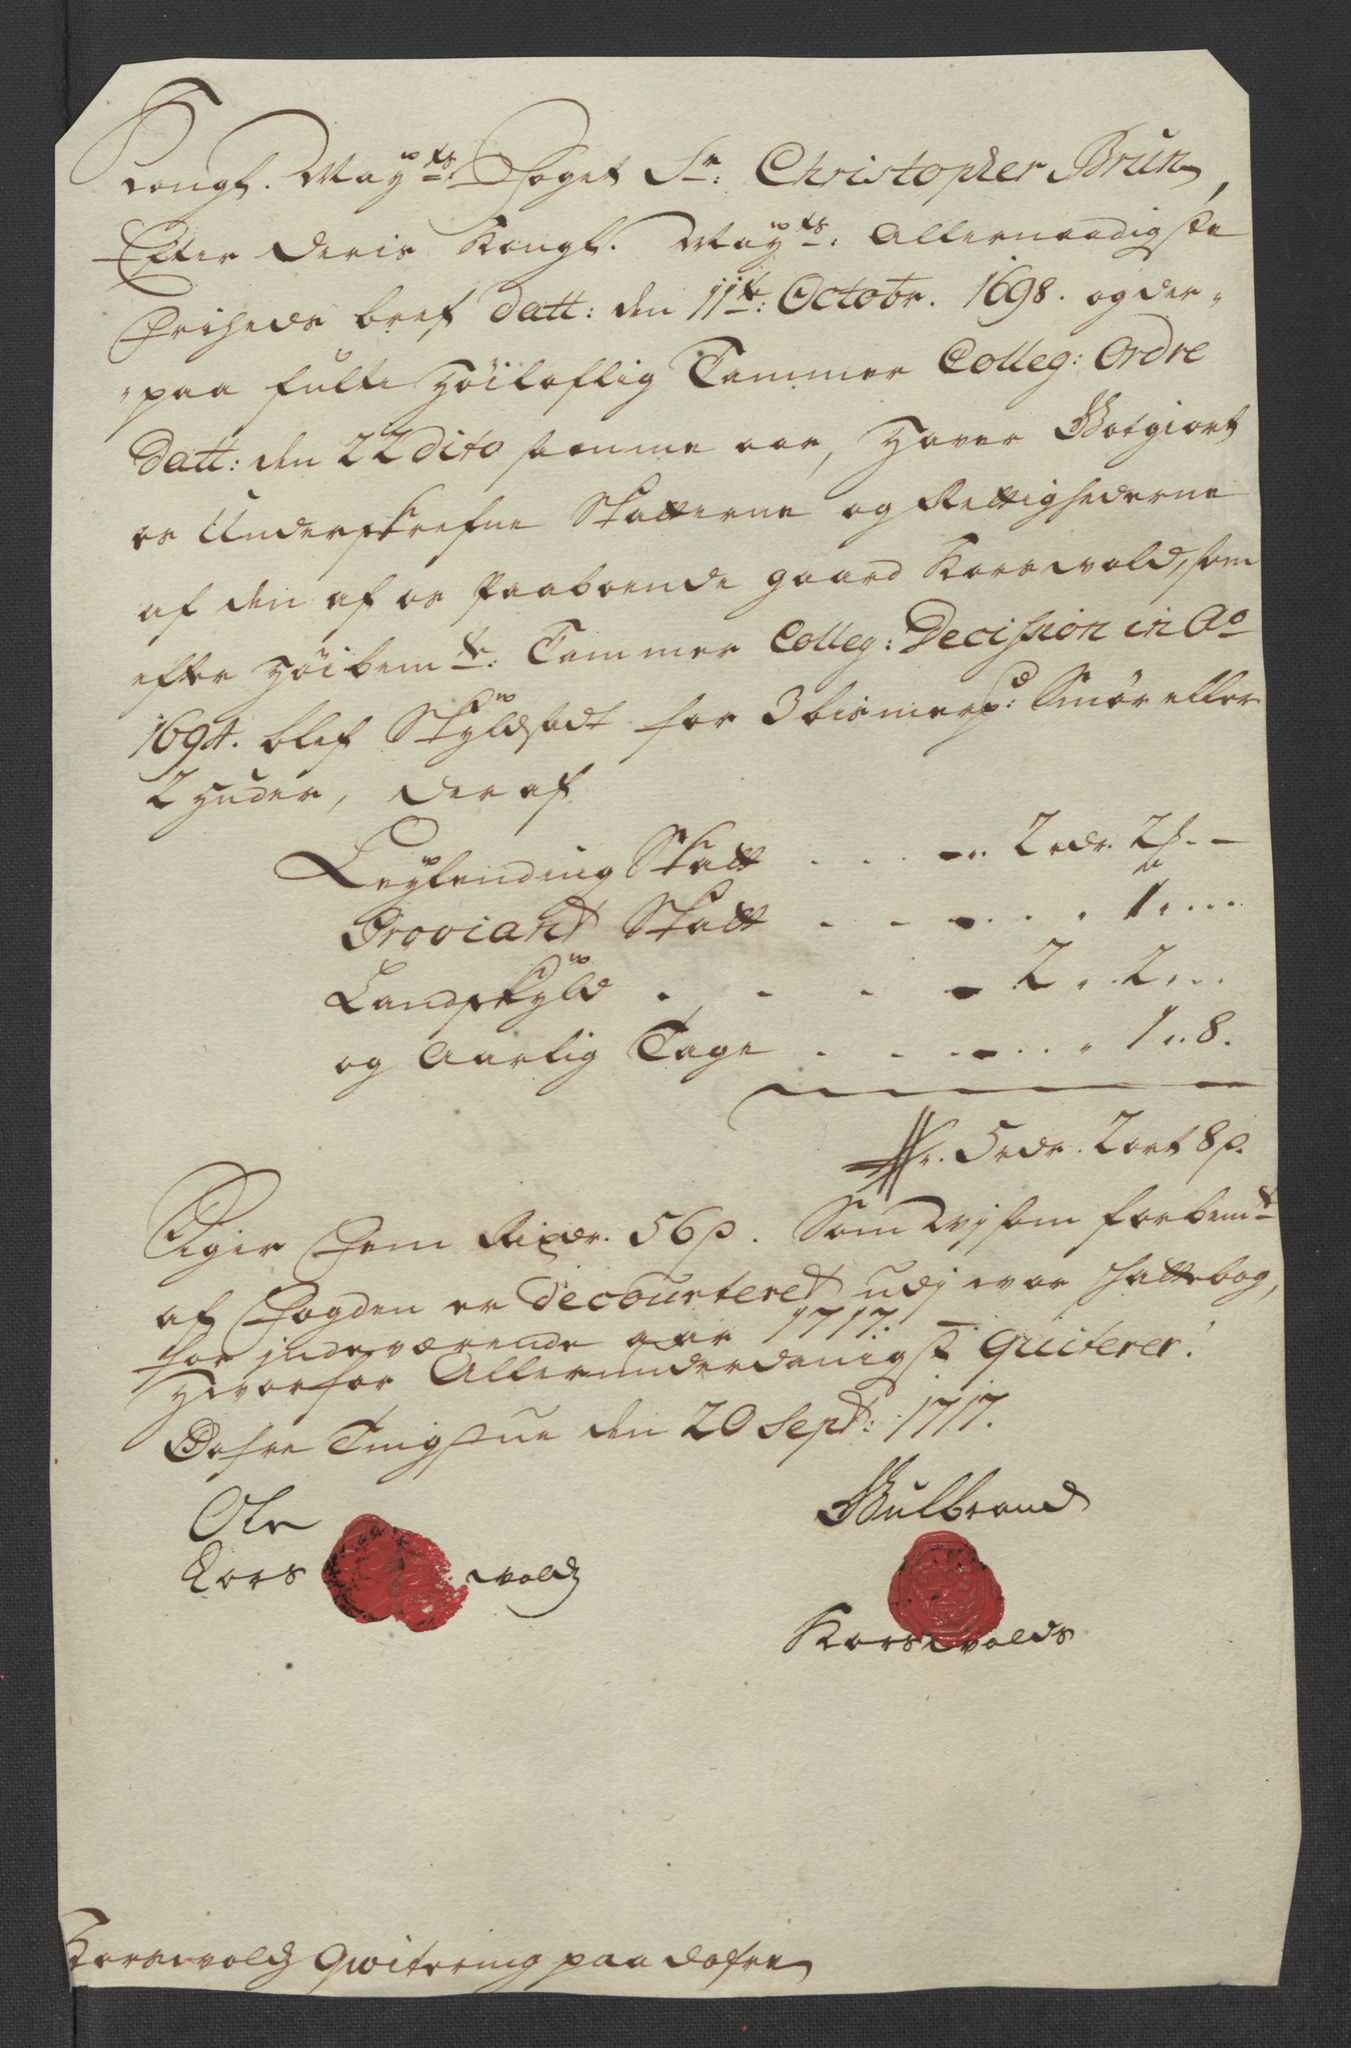 Kongl. Mayts Foget Sr: Christopher Brun,
Efter deris Kongl. Mayts: Allernaadigste
Friheds bref datt: den 11te: Octobr. 1698. og der-
paa fulte Höiloflig Cammer Colleg: Ordre
datt: den 22 dito samme aar, Hafver Godtgiort
os Underskrefne Skatterne og Rettighederne
af den af os Paaboende gaard Korsvold, som
efter Höibemte: Cammer Colleg: Decission in Ao
1694. blef Skyldsadt for 3 bismerpd: Smör eller
2 Huder, der af
Leylending Skatt . . . 2 rdr. 2 s. -
Proviant Skatt . . . . 1 ...
Landskyld . . . . 2 . 2 ...
og Aarlig Tage . . . . 1 . 8.
Er. 5 rdr. 2 ort 8 s.
Siger Fem Rixdr. 56 s. Som Vj som forbemt
af Fogden er decourteret udj vor skattebog,
for indeværende aar 1717. -
Hvorfor Allerunderdanigst quiterer.
Dofre Tingstue den 20 Sept: 1717.
Ole Gulbrand
Kors vold Korsvolds
Korsvolds Qvitering paa Dofre